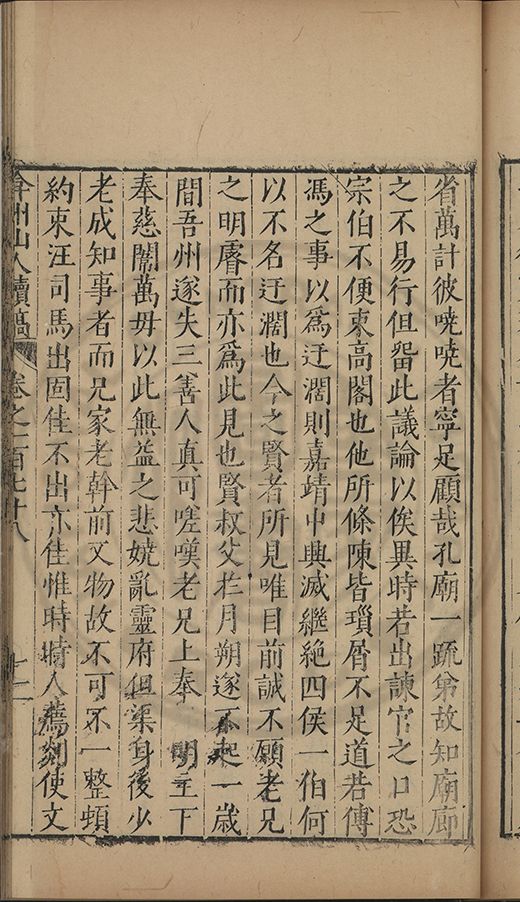 省萬計彼嘵嘵者寧足顧哉孔廟一疏弟故知廟廊
之不易行但畱此議論以俟異時若出諫官之口恐
宗伯不便東高閣也他所條陳皆瑣屑不足道若傅
馮之事以爲迂濶則嘉靖中興滅繼絶四侯一伯何
以不名迂濶也今之賢者所見唯目前誠不願老兄
之明睿而亦爲此見也賢叔父於月朔遂不起一歲
間吾州遂失三善人真可嗟嘆老兄上奉 明主下
奉慈闈萬毋以此無益之悲嬈亂靈府但渠身後少
老成知事者而兄家老幹前又物故不可不一整頓
約束汪司馬出固佳不出亦佳惟時時人薦剡使文
弇州山人續稿 卷之一百七十八 十二